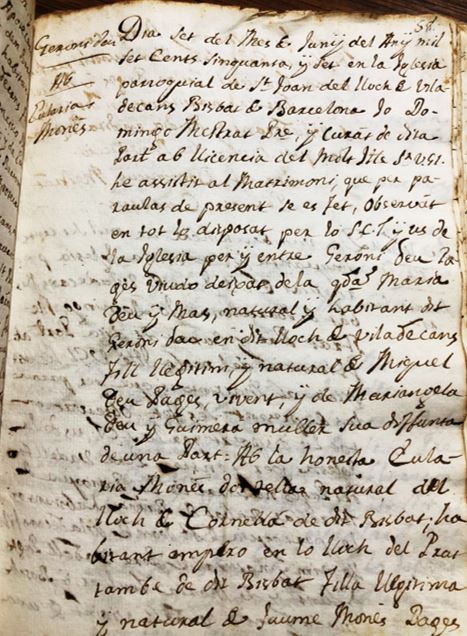 58.
Geroni Deu
Ab
Eularia
Monés
Dia set del Mes de Juny del Any mil
set Cents Sinquanta, y set en la Iglesia
parroquial de St. Joan del lloch de Vila
decans Bisbat de Barcelona Jo Do-
mingo Mestrat Pre, y Curat de dita
Part. ab llicencia del Molt Ilte Sr.
he assistit al Matrimoni, que per pa-
raulas de present se es fet, Observat
en tot lo disposat per lo S.C.T. y us de
la Iglesia per y entre Geroni Deu Pa-
gès Viudo deixat de la qda. Maria
Deu y Mas, natural y habitant dit
Geroni Deu en dit lloch de Viladecans
fill llegitim, y natural de Miquel
Deu Pages, vivent, y de Marianela
Deu y Guimera muller sua diffunta
de una Part: Ab la honesta Eula-
ria Monés donzella natural del
lloch de Cornellá de dit Bisbat, ha
bitant empero en lo lloch del Prat
tambe de dit Bisbat filla llegitima
y natural de Jaume Monés Pages